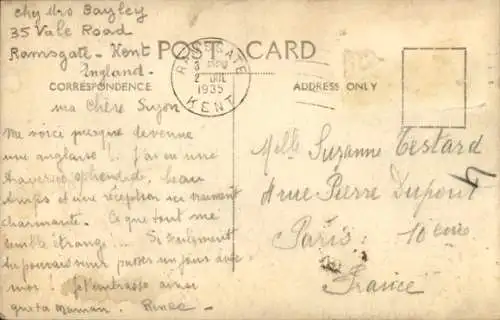 chy Mrs Bayley
35 Vale Road
Ramsgate - Kent
England -
POST CARD
RAMSGATE
KENT
3 PM
2 JUL
1935
CORRESPONDENCE
ADDRESS ONLY
ma Chère Suzon
Me voici presque devenue
une anglaise! J'ai eu une
traversée splendide, beau
temps et une réception si vraiment
charmante. Ce que tout me
semble étrange... Si seulement
tu pouvais venir passer un jour avec
moi! Je t'embrasse ainsi
que ta maman. Renée
Melle Suzanne Testard
4 rue Pierre Dupont
Paris: 10ème
France